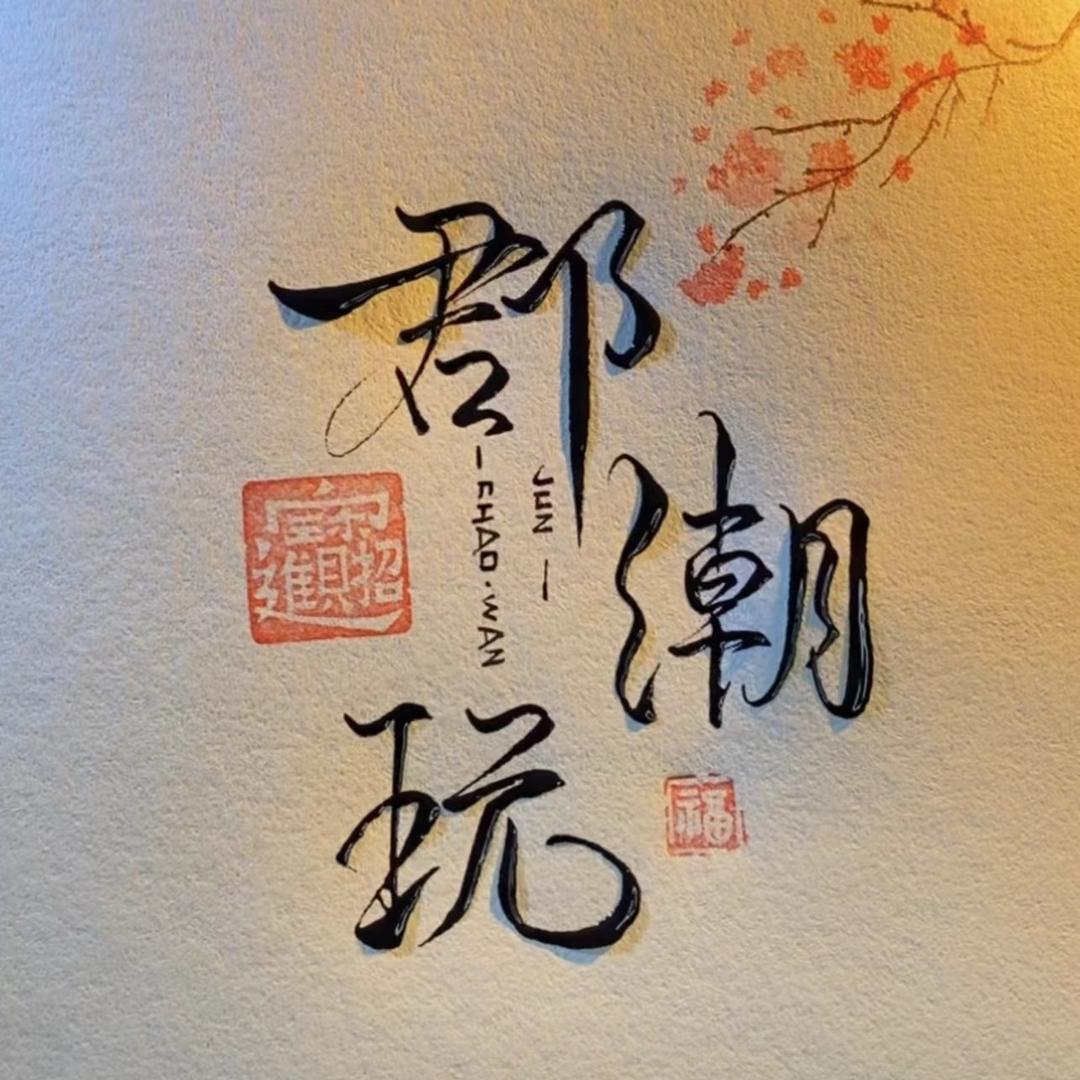 郡
潮
玩
JUN —
— CHAO·WAN
招財進寶
福